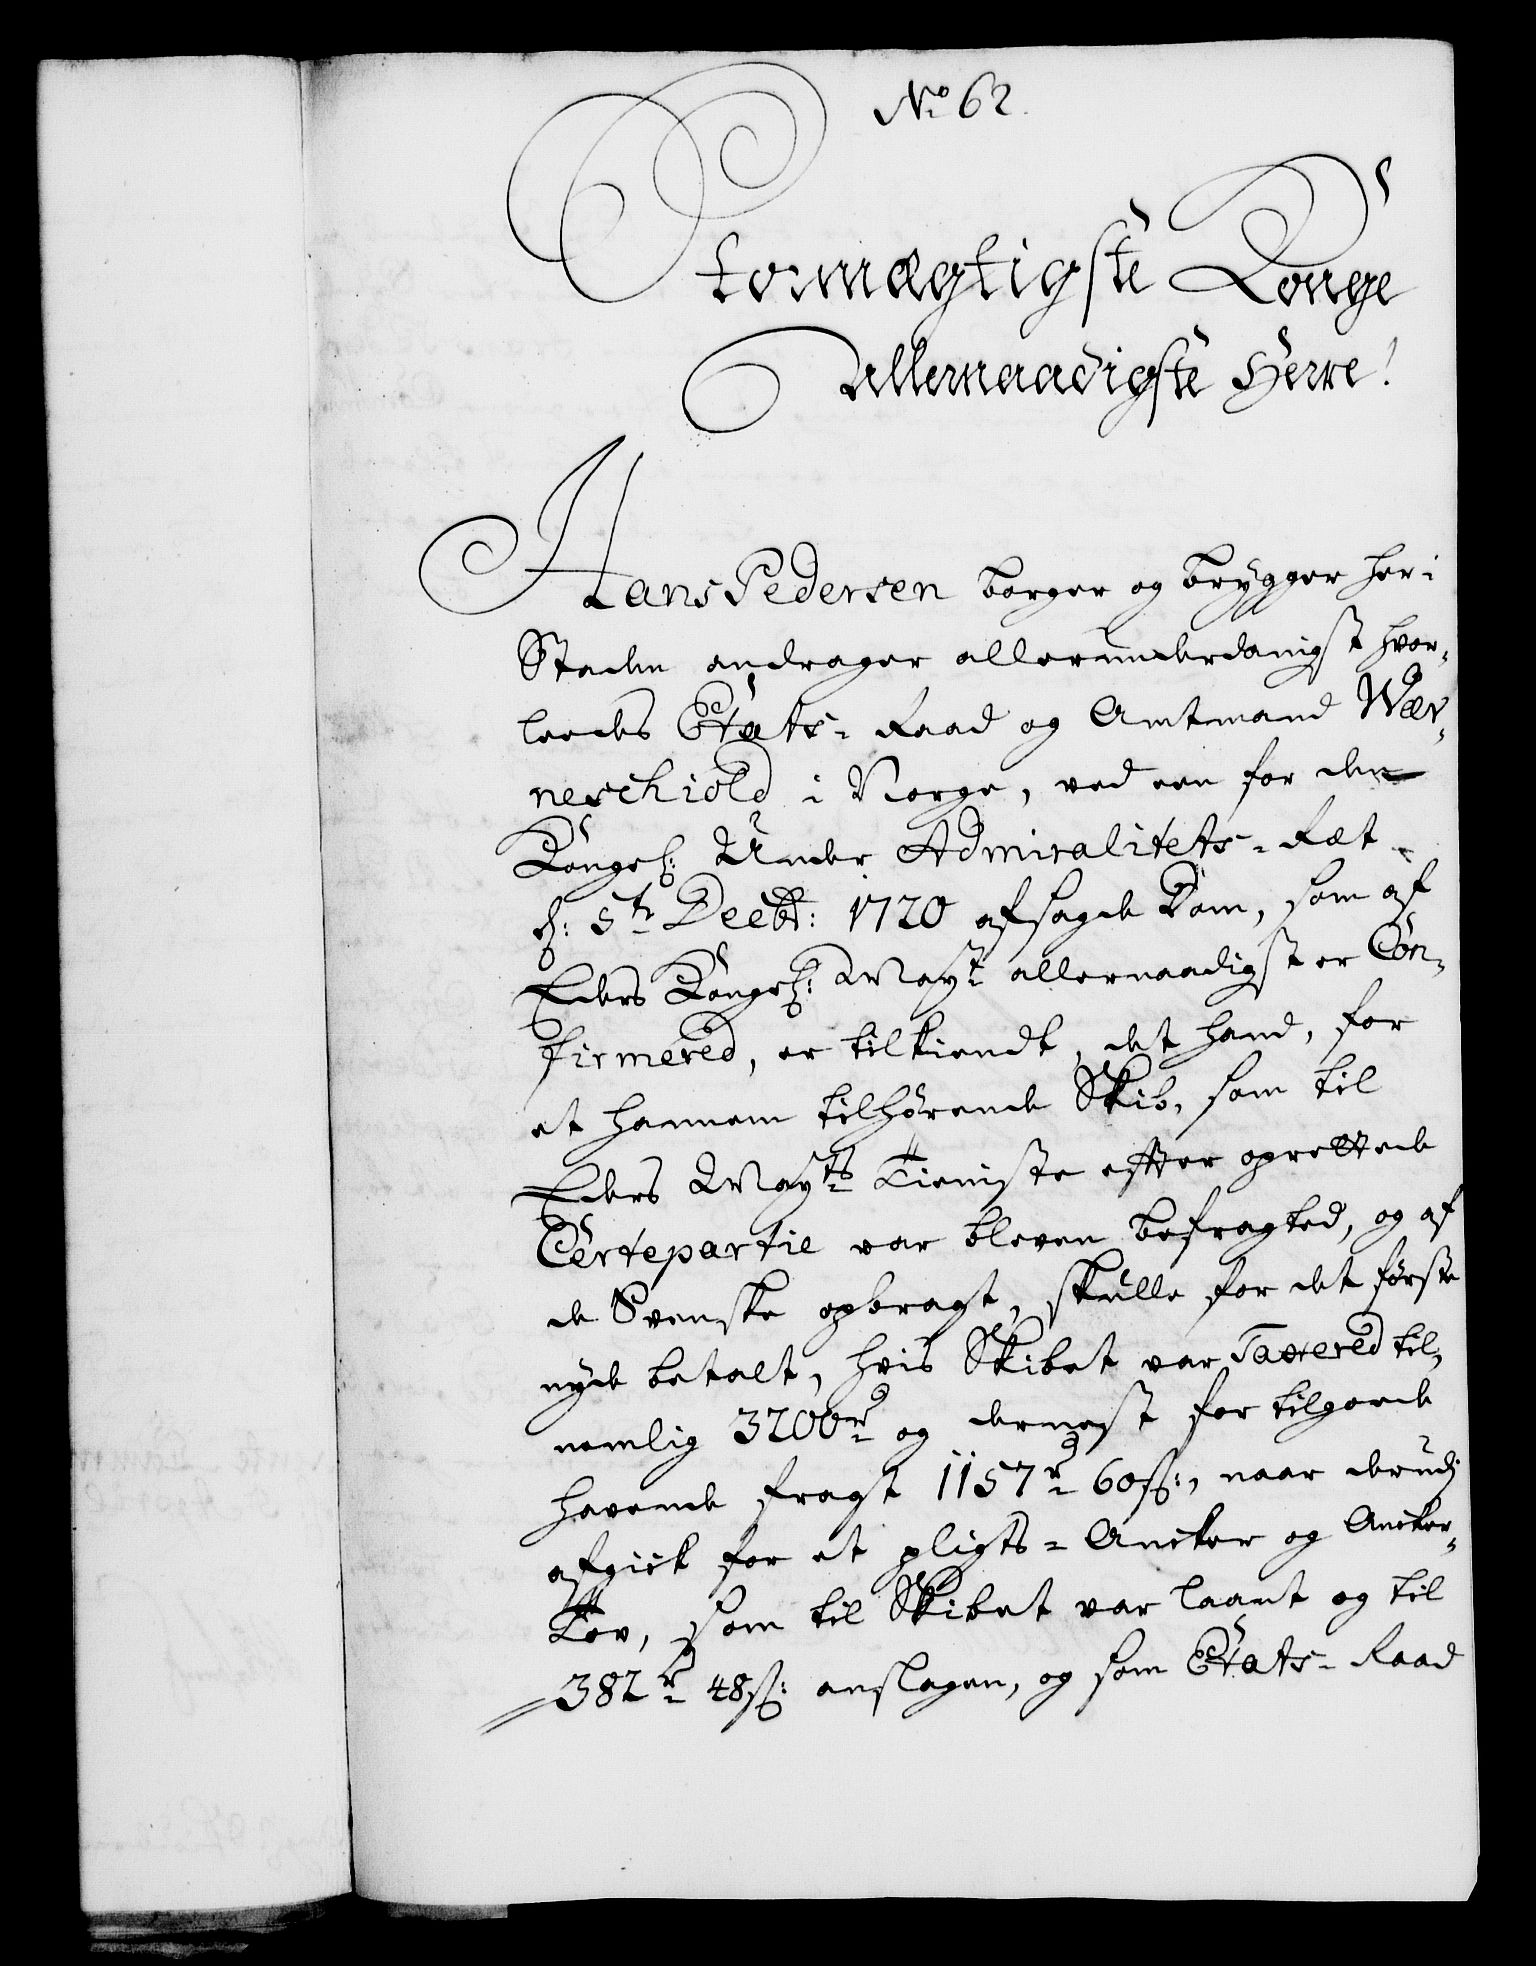 No 62.
Stormægtigste Konge
Allernaadigste Herre!
Hans Pedersen borger og brygger her i
Staden andrager allerunderdanigst hvor-
leedes Etats-Raad og Amtmand Wær-
neschiold i Norge, ved een for den
Kongel: Under Admiralitets-Ræt
d: 5te Decbr: 1720 afsagde Dom, som af
Eders Kongel: Mayt allernaadigst er Con-
firmered, er tilkiendt, det hand, for
et hannem tilhørende Skib, som til
Eders Mayts Tieniste effter oprettede
Certepartie var bleven befragted, og af
de Svenske opbragt, skulle for det første
nyde betalt, hvis Skibet var Taxered til,
nemlig 3200 rd og dernest for tilgode
havende fragt 1157 rd 60 ß:, naar derudj
afgick for et pligts-Ancker og Ancker-
Tov, som til Skibet var laant og til
382 rd 48 ß: anslagen, og som Etats-Raad